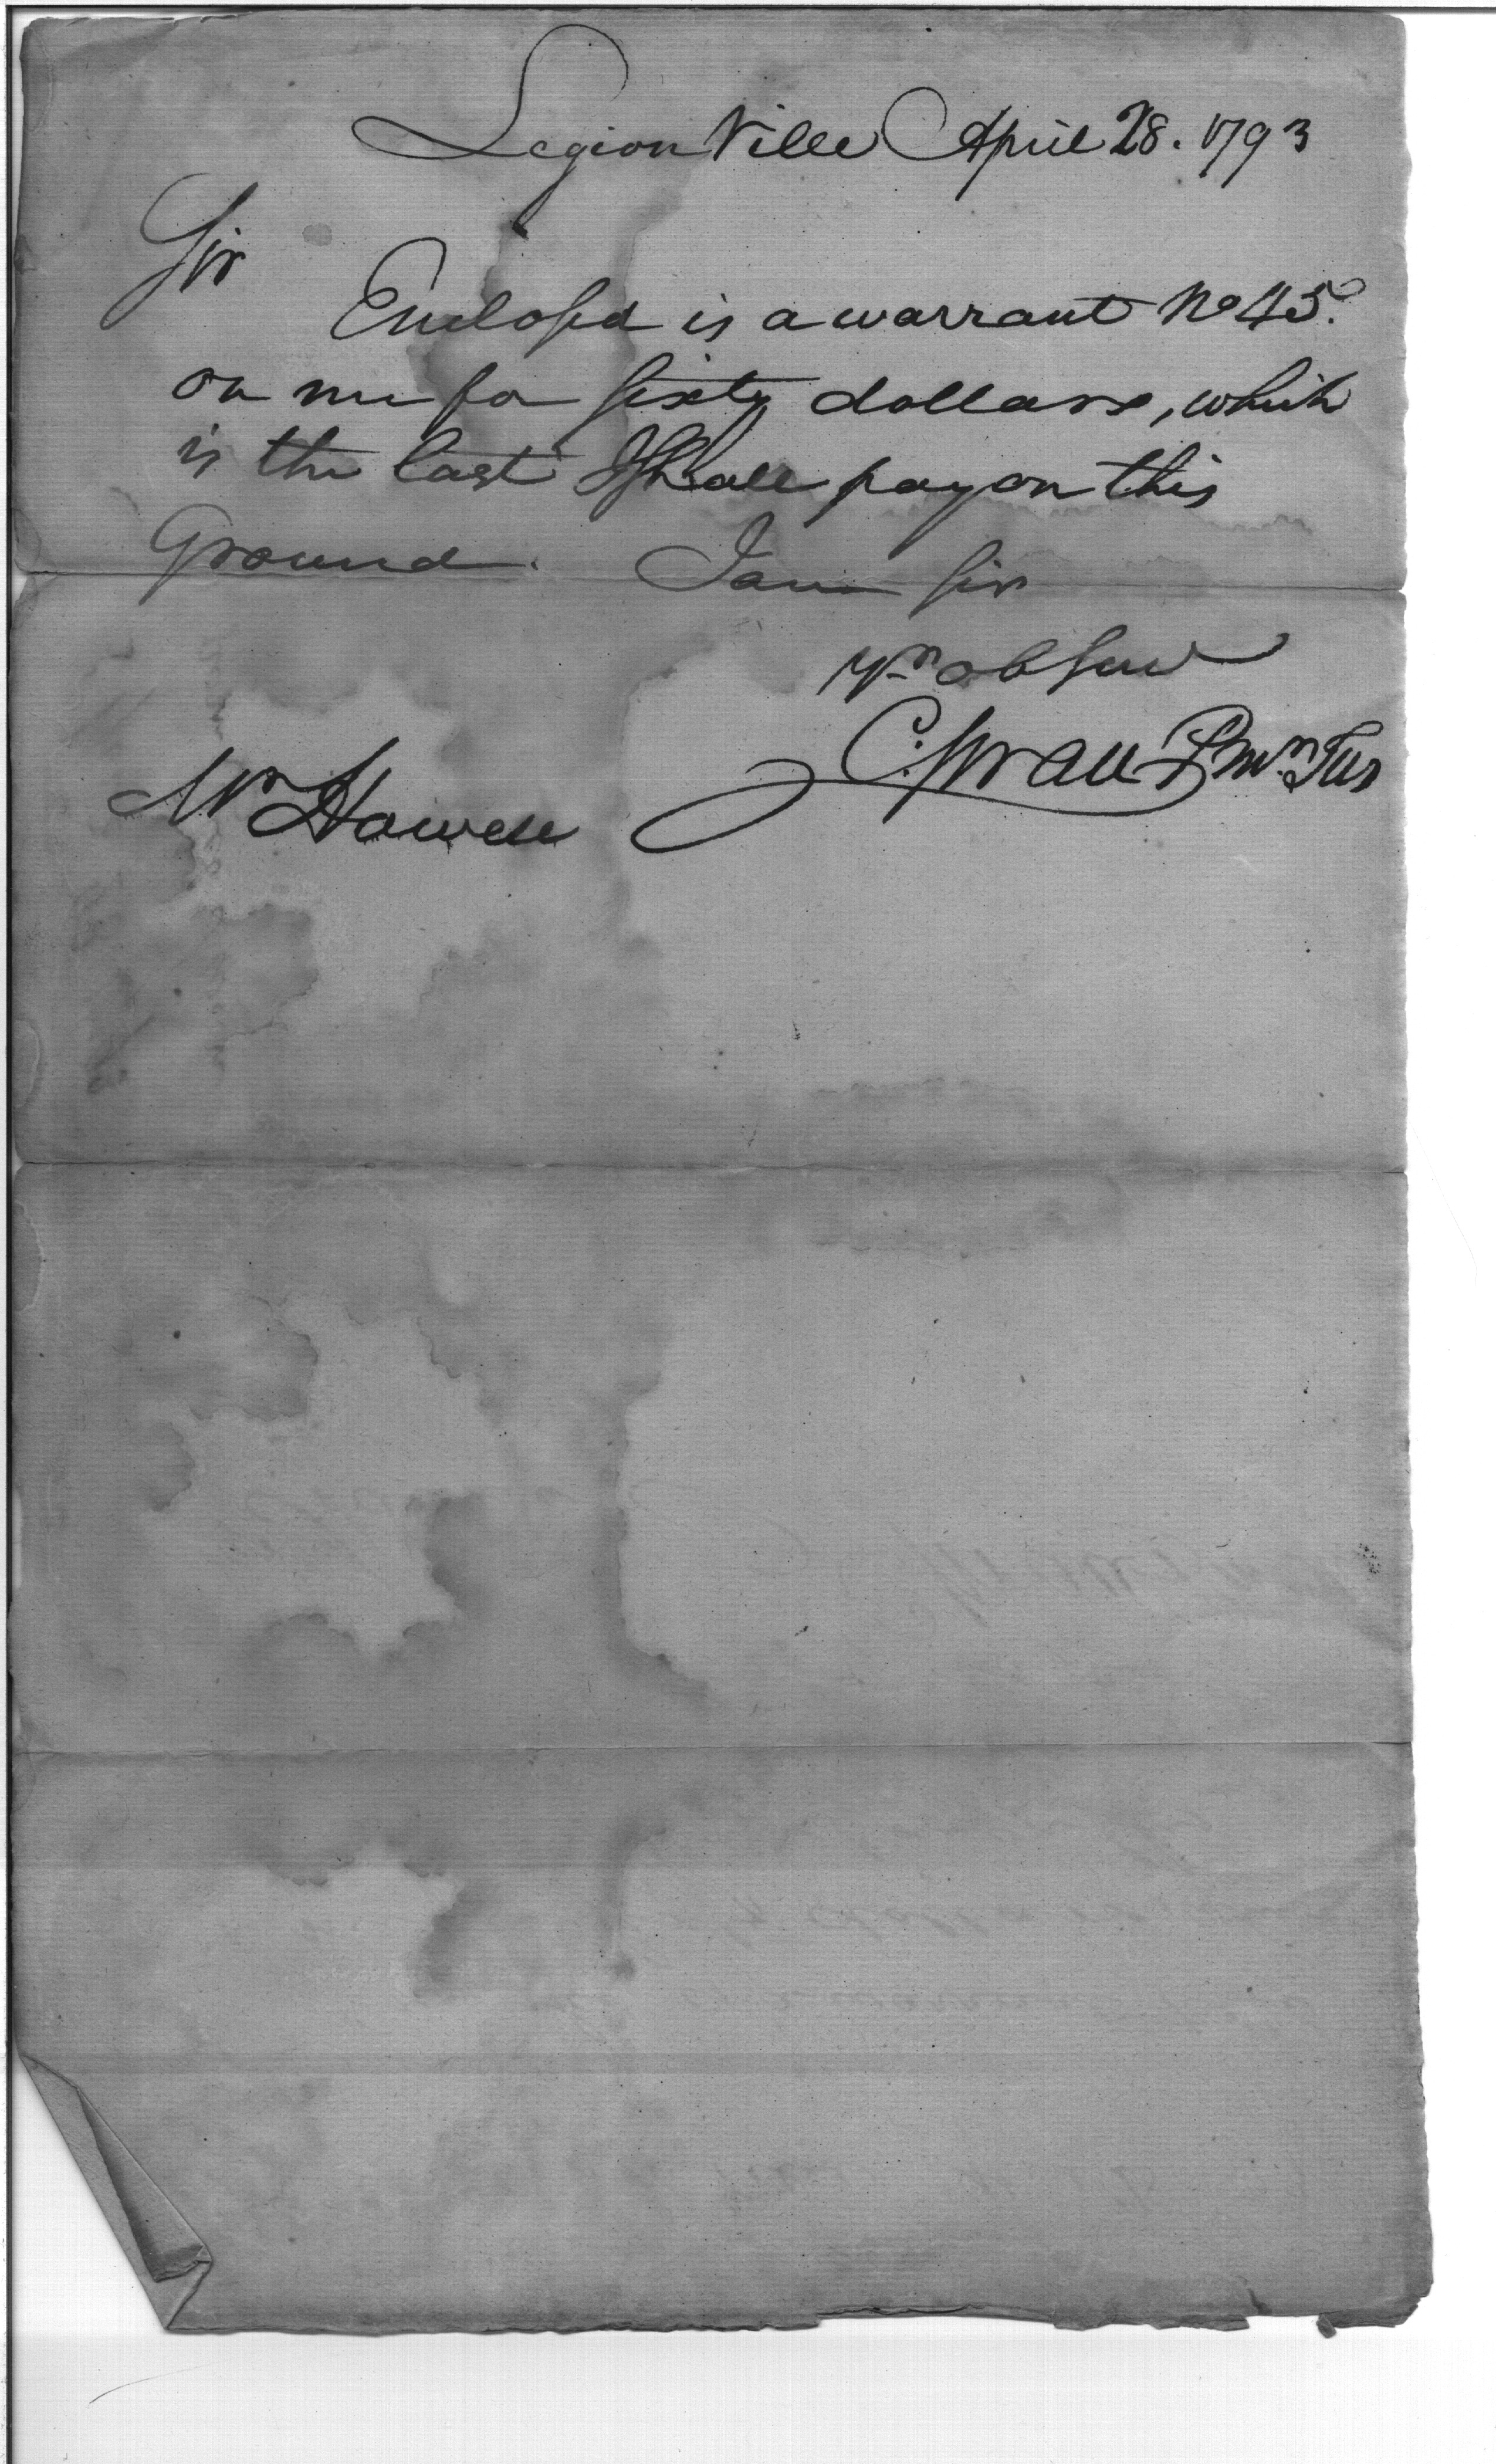 Legion Ville April 28. 1793
Sir
Enclosed is a warrant No 45.
on me for sixty dollars, which
is the last I shall pay on this
Ground. I am sir
Yr ob serv
C. Swan P Mr Tus
Mr Howell